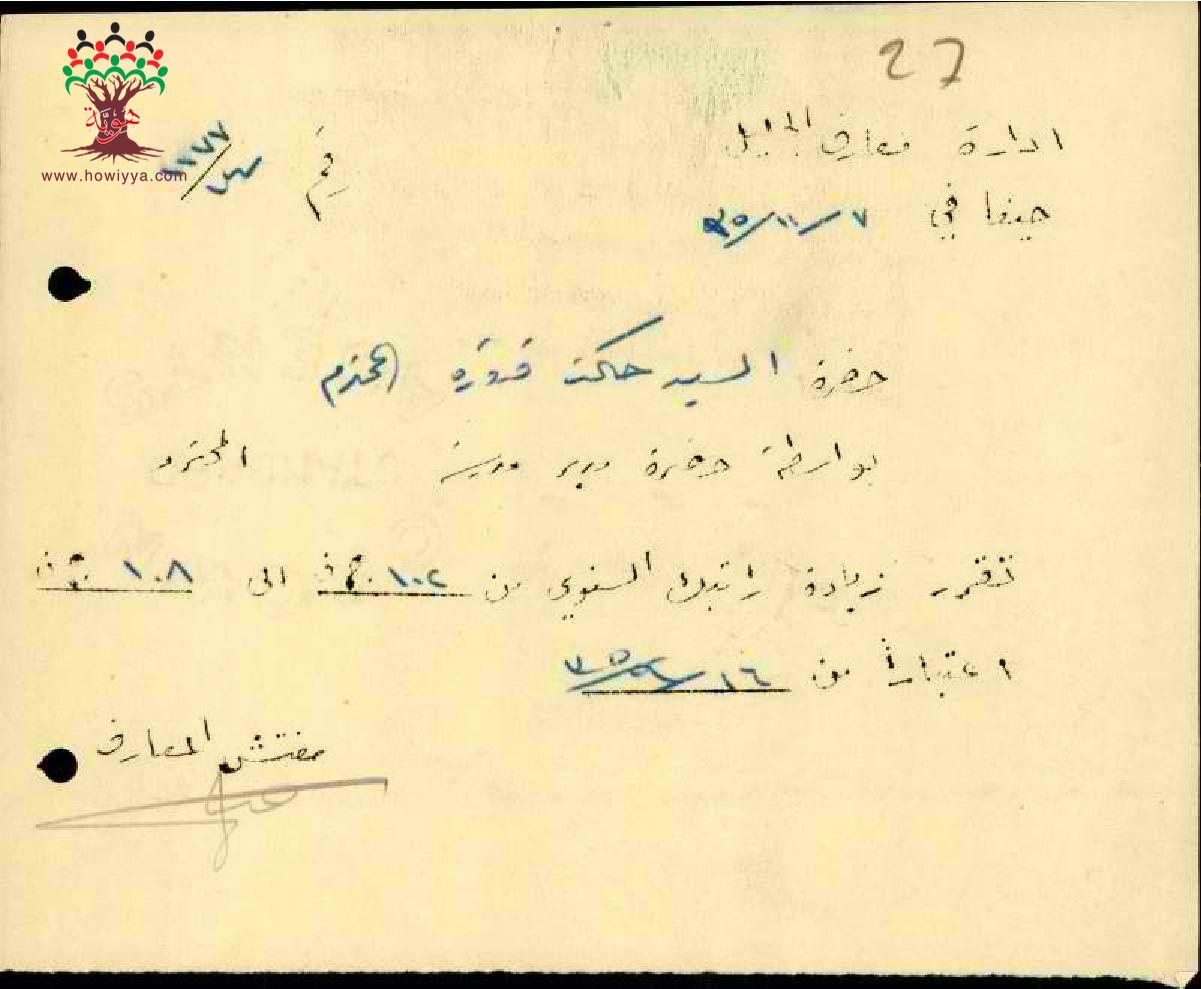 27
هوية
www.howiyya.com
ادارة معارف الجليل رقم
حيفا في ٧/١١/٣٥
حضرة السيد حكمت فروة المحترم
بواسطة حضرة مدير مدرسة المحترم
تقرر زيادة راتبك السنوي من ١٠٢ الى ١٠٨
اعتباراً من
مفتش المعارف